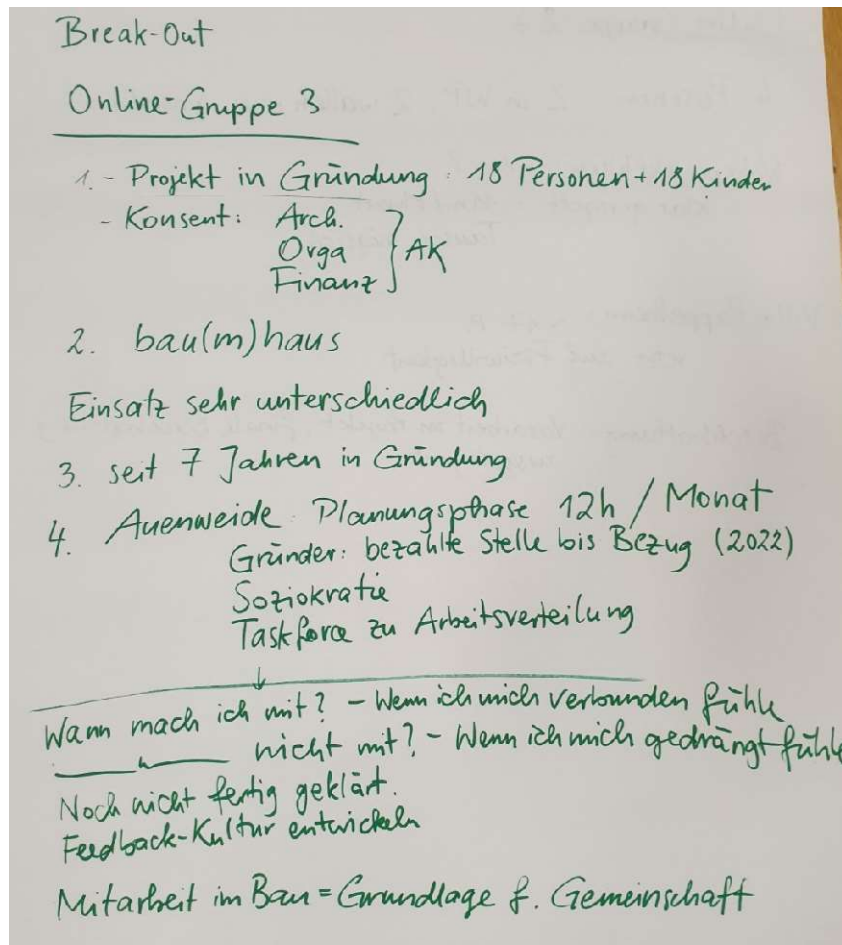 Break-Out
Online-Gruppe 3
1. - Projekt in Gründung: 18 Personen + 18 Kinder
- Konsent: Arch.
Orga } AK
Finanz
2. bau(m)haus
Einsatz sehr unterschiedlich
3. seit 7 Jahren in Gründung
4. Auenweide: Planungsphase 12h / Monat
Gründer: bezahlte Stelle bis Bezug (2022)
Soziokratie
Taskforce zu Arbeitsverteilung
↓
Wann mach ich mit? - Wenn ich mich verbunden fühle
—"— nicht mit? - Wenn ich mich gedrängt fühle
Noch nicht fertig geklärt.
Feedback-Kultur entwickeln
Mitarbeit im Bau = Grundlage f. Gemeinschaft